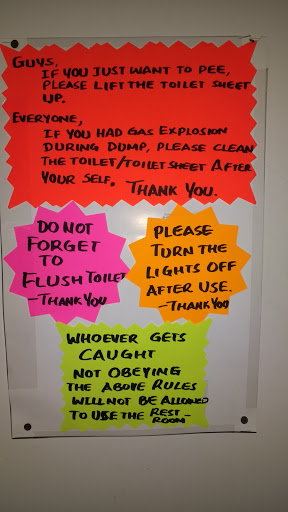 GUYS,
IF YOU JUST WANT TO PEE,
PLEASE LIFT THE TOILET SHEET
UP.
EVERYONE,
IF YOU HAD GAS EXPLOSION
DURING DUMP, PLEASE CLEAN
THE TOILET/TOILET SHEET AFTER
YOUR SELF. THANK YOU.
DO NOT
FORGET
TO
FLUSH TOILET
-THANK YOU
PLEASE
TURN THE
LIGHTS OFF
AFTER USE.
-THANK YOU
WHOEVER GETS
CAUGHT
NOT OBEYING
THE ABOVE RULES
WILL NOT BE ALLOWED
TO USE THE REST-
ROOM